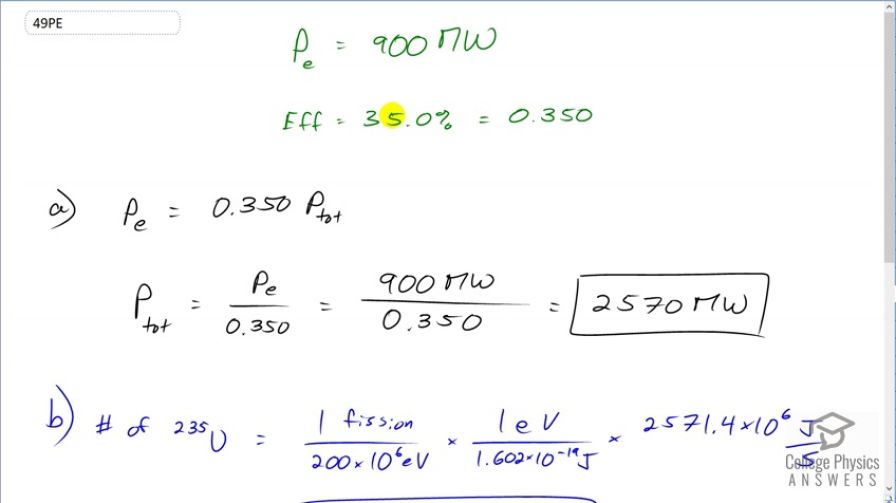 49PE
Pe = 900 MW
Eff = 35.0% = 0.350
a) Pe = 0.350 Ptot
Ptot = Pe / 0.350 = 900 MW / 0.350 = 2570 MW
b) # of ²³⁵U = 1 fission / 200×10⁶eV × 1eV / 1.602×10⁻¹⁹J × 2571.4×10⁶ J/s
College Physics
ANSWERS